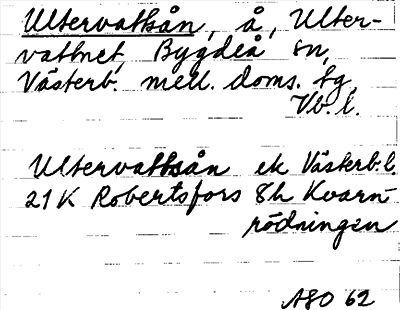 Ultervattsån, å, Ulter-
vattnet, Bygdeå sn,
Västerb. mell. doms. tg,
Vb. l.
Ultervattsån ek Västerb:l.
21K Robertsfors 8h Kvarn-
rödningen
ASO 62